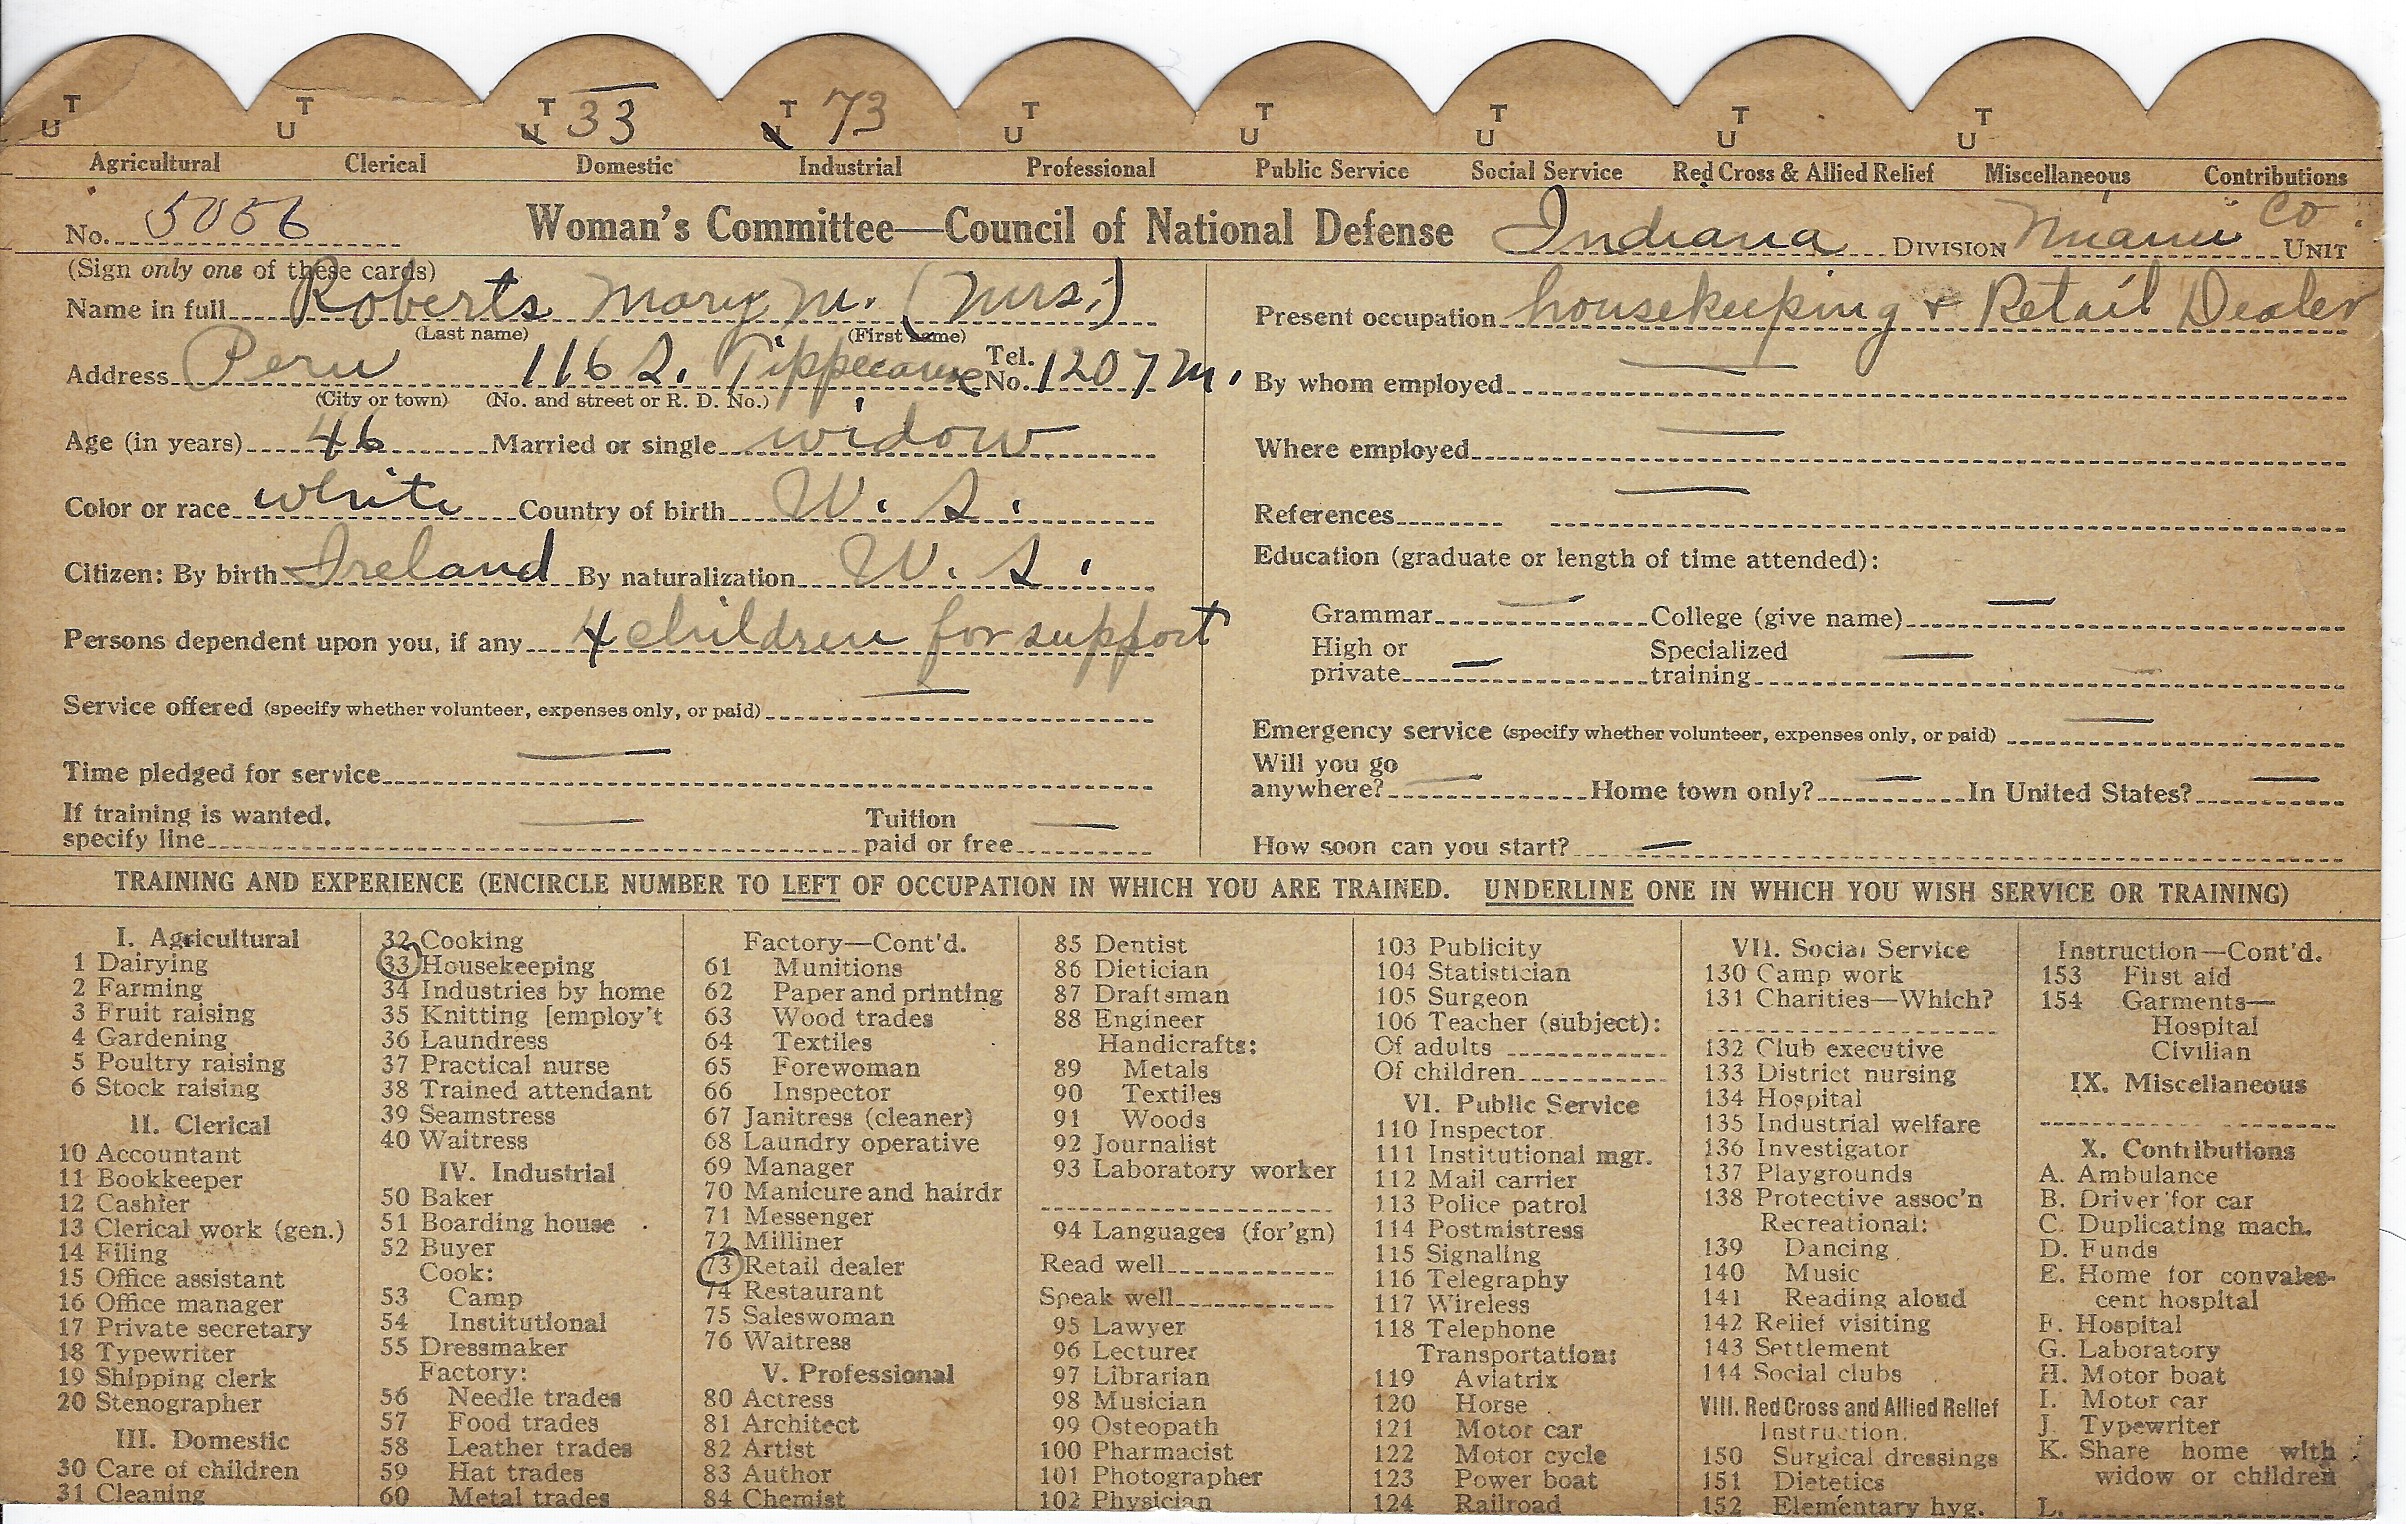 T U T U T U 33 T U 73 T U T U T U T U T U
Agricultural Clerical Domestic Industrial Professional Public Service Social Service Red Cross & Allied Relief Miscellaneous Contributions
No. 5056 Woman's Committee—Council of National Defense Indiana DIVISION Miami Co UNIT
(Sign only one of these cards)
Name in full Roberts Mary M. (Mrs.)
(Last name) (First name)
Address Peru 116 S. Tippecanoe Tel. No. 1207 M.
(City or town) (No. and street or R. D. No.)
Age (in years) 46 Married or single widow
Color or race white Country of birth U. S.
Citizen: By birth Ireland By naturalization U. S.
Persons dependent upon you, if any 4 children for support
Service offered (specify whether volunteer, expenses only, or paid) —
Time pledged for service —
If training is wanted, specify line — Tuition paid or free —
Present occupation housekeeping & Retail Dealer
By whom employed —
Where employed —
References —
Education (graduate or length of time attended):
Grammar — College (give name) —
High or private — Specialized training —
Emergency service (specify whether volunteer, expenses only, or paid) —
Will you go anywhere? — Home town only? — In United States? —
How soon can you start? —
TRAINING AND EXPERIENCE (ENCIRCLE NUMBER TO LEFT OF OCCUPATION IN WHICH YOU ARE TRAINED. UNDERLINE ONE IN WHICH YOU WISH SERVICE OR TRAINING)
I. Agricultural
1 Dairying
2 Farming
3 Fruit raising
4 Gardening
5 Poultry raising
6 Stock raising
II. Clerical
10 Accountant
11 Bookkeeper
12 Cashier
13 Clerical work (gen.)
14 Filing
15 Office assistant
16 Office manager
17 Private secretary
18 Typewriter
19 Shipping clerk
20 Stenographer
III. Domestic
30 Care of children
31 Cleaning
32 Cooking
33 Housekeeping
34 Industries by home
35 Knitting [employ't
36 Laundress
37 Practical nurse
38 Trained attendant
39 Seamstress
40 Waitress
IV. Industrial
50 Baker
51 Boarding house
52 Buyer
Cook:
53 Camp
54 Institutional
55 Dressmaker
Factory:
56 Needle trades
57 Food trades
58 Leather trades
59 Hat trades
60 Metal trades
Factory—Cont'd.
61 Munitions
62 Paper and printing
63 Wood trades
64 Textiles
65 Forewoman
66 Inspector
67 Janitress (cleaner)
68 Laundry operative
69 Manager
70 Manicure and hairdr
71 Messenger
72 Milliner
73 Retail dealer
74 Restaurant
75 Saleswoman
76 Waitress
V. Professional
80 Actress
81 Architect
82 Artist
83 Author
84 Chemist
85 Dentist
86 Dietician
87 Draftsman
88 Engineer
Handicrafts:
89 Metals
90 Textiles
91 Woods
92 Journalist
93 Laboratory worker
94 Languages (for'gn)
Read well
Speak well
95 Lawyer
96 Lecturer
97 Librarian
98 Musician
99 Osteopath
100 Pharmacist
101 Photographer
102 Physician
103 Publicity
104 Statistician
105 Surgeon
106 Teacher (subject):
Of adults
Of children
VI. Public Service
110 Inspector
111 Institutional mgr.
112 Mail carrier
113 Police patrol
114 Postmistress
115 Signaling
116 Telegraphy
117 Wireless
118 Telephone
Transportation:
119 Aviatrix
120 Horse
121 Motor car
122 Motor cycle
123 Power boat
124 Railroad
VII. Social Service
130 Camp work
131 Charities—Which?
132 Club executive
133 District nursing
134 Hospital
135 Industrial welfare
136 Investigator
137 Playgrounds
138 Protective assoc'n
Recreational:
139 Dancing
140 Music
141 Reading aloud
142 Relief visiting
143 Settlement
144 Social clubs
VIII. Red Cross and Allied Relief
Instruction.
150 Surgical dressings
151 Dietetics
152 Elementary hyg.
Instruction—Cont'd.
153 First aid
154 Garments—
Hospital
Civilian
IX. Miscellaneous
X. Contributions
A. Ambulance
B. Driver for car
C. Duplicating mach.
D. Funds
E. Home for convales-
cent hospital
F. Hospital
G. Laboratory
H. Motor boat
I. Motor car
J. Typewriter
K. Share home with
widow or children
L.